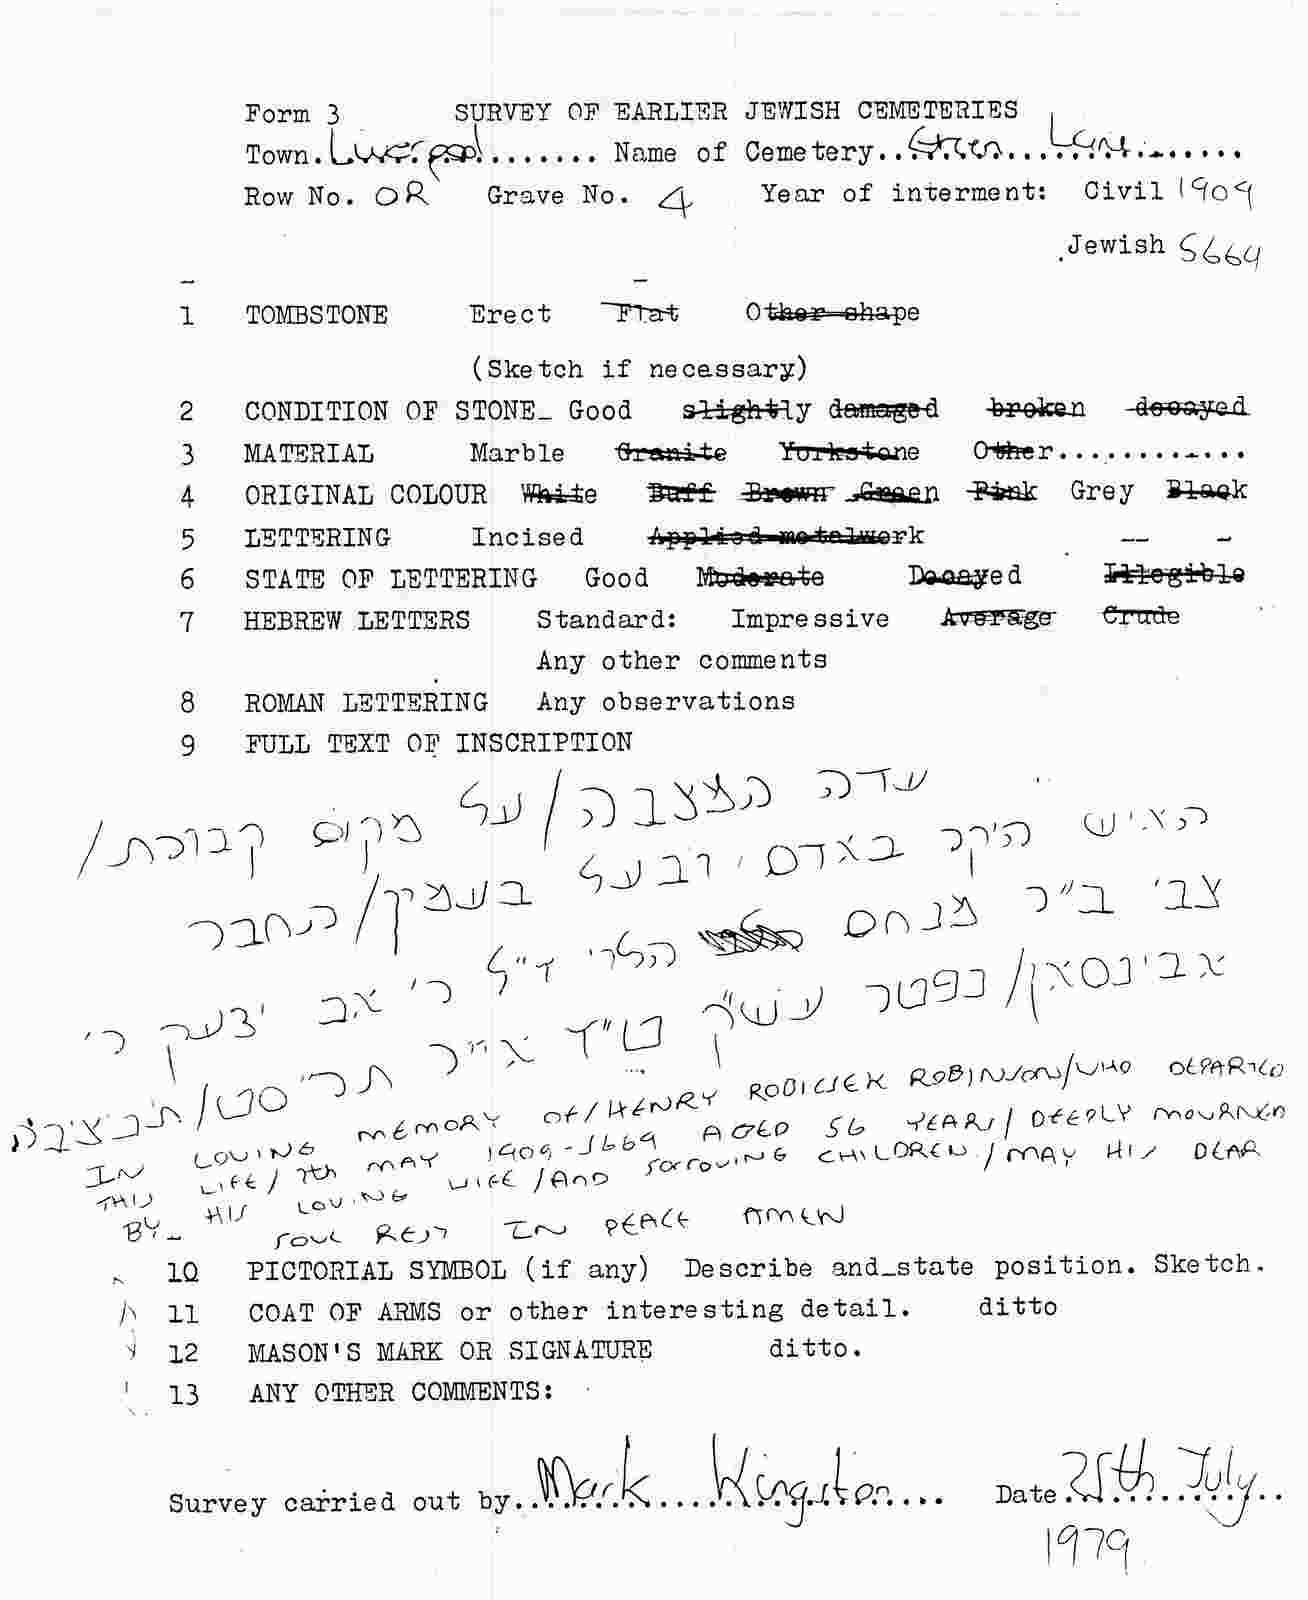 Form 3 SURVEY OF EARLIER JEWISH CEMETERIES
Town.Liverpool........ Name of Cemetery..Green Lane........
Row No. OR Grave No. 4 Year of interment: Civil 1909
Jewish 5669
1 TOMBSTONE Erect Flat Other shape
(Sketch if necessary)
2 CONDITION OF STONE_ Good slightly damaged broken decayed
3 MATERIAL Marble Granite Yorkstone Other............
4 ORIGINAL COLOUR White Buff Brown Green Pink Grey Black
5 LETTERING Incised Applied metalwork
6 STATE OF LETTERING Good Moderate Decayed Illegible
7 HEBREW LETTERS Standard: Impressive Average Crude
Any other comments
8 ROMAN LETTERING Any observations
9 FULL TEXT OF INSCRIPTION
עדה המצבה/על מקום קבורת/
האיש היקר באדם ובעל בעמיו/החבר
צבי ב״ר מנחם הלוי ז״ל ר׳ אב יצעק ר׳
אבינסאן/נפטר עש״ק ט״ז אייר תר״סט/ת׳נ׳צ׳ב׳ה
IN LOVING MEMORY OF/HENRY ROBINSON/WHO DEPARTED
THIS LIFE/7th MAY 1909-5669 AGED 56 YEARS/DEEPLY MOURNED
BY HIS LOVING WIFE/AND SORROWING CHILDREN/MAY HIS DEAR
SOUL REST IN PEACE AMEN
10 PICTORIAL SYMBOL (if any) Describe and_state position. Sketch.
11 COAT OF ARMS or other interesting detail. ditto
12 MASON'S MARK OR SIGNATURE ditto.
13 ANY OTHER COMMENTS:
Survey carried out by..Mark Kingston.... Date.25th July..
1979